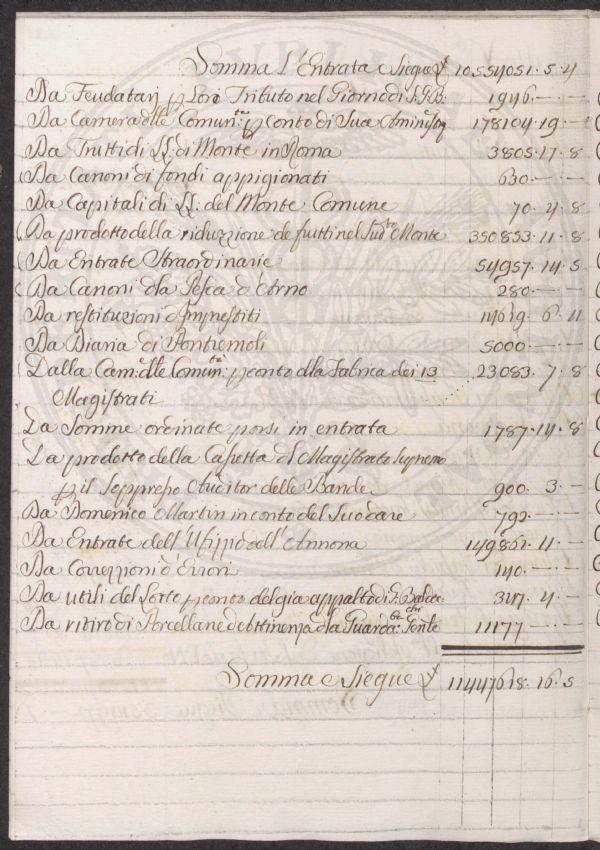 Somma l'Entrata e Siegue ₰ 10554051. 5. 4
Da Feudatarj p Loro Tributo nel Giorno di S. G. B. 1946. — . —
Da Camera dlle Comun.tà p conto di Sua 178104. 19 —
Da Frutti di LL. di Monte in Roma 3805. 17. 8
Da Canoni di fondi appigionati 630. — . —
Da Capitali di LL. del Monte Comune 70. 4. 8
Da prodotto della riduzzione de frutti nel Sud.to Monte 350853. 11. 8
Da Entrate Straordinarie 54957. 14. 5
Da Canoni dla Pesca d'Arno 280. — . —
Da restituzioni d'Imprestiti 14619. 6. 11
Da Diaria di Pontremoli 5000. — . —
Dalla Cam.a dlle Comun.tà p conto dlla Fabrica dei 13 23083. 7. 8
Magistrati
Da Somme ordinate porsi in entrata 1787. 14. 8
Da prodotto della Cassetta dl Magistrato Supremo
p il Soppresso Auditor delle Bande 900. 3. —
Da Domenico Martin in conto del Suo dare 792. — . —
Da Entrate dell'Ufizzio dell'Annona 149861. 11 —
Da Correzzioni d'Errori 140. — . —
Da utili del Lotto p conto del gia appalto di 347. 4. —
Da ritiro di Porcellane d'attinenza dla Guarda. 11177 — . —
Somma e Siegue ₰ 11447618. 16. 5